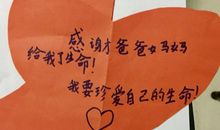 感谢才爸爸妈妈
给我了生命!
我要珍爱自己的生命!